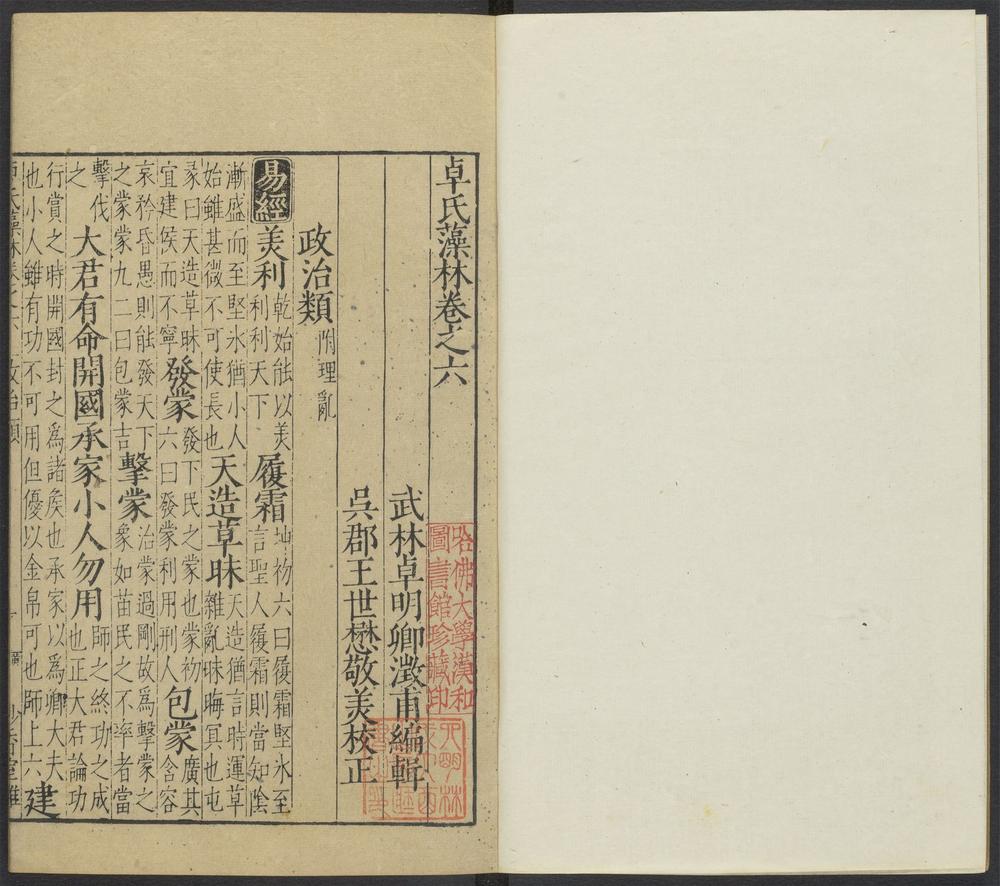 卓氏藻林卷之六
哈佛大學漢和
圖書館珍藏印
武林卓明卿澂甫編輯
吳郡王世懋敬美校正
政治類 附理亂
易經 美利 乾始能以美利利天下 履霜 坤初六曰履霜堅氷至言聖人履霜則當知陰
漸盛而至堅氷猶小人始雖甚微不可使長也 天造草昧 天造猶言時運草雜亂昧晦冥也屯
彖曰天造草昧宜建侯而不寧 發蒙 發下民之蒙也蒙初六曰發蒙利用刑人 包蒙 廣其含容
哀矜昏愚則能發天下之蒙蒙九二曰包蒙吉 擊蒙 治蒙過剛故爲擊蒙之象如苗民之不率者當
擊伐之 大君有命開國承家小人勿用 師之終功之成也正大君論功
行賞之時開國封之爲諸侯也承家以爲卿大夫也小人雖有功不可用但優以金帛可也師上六 建